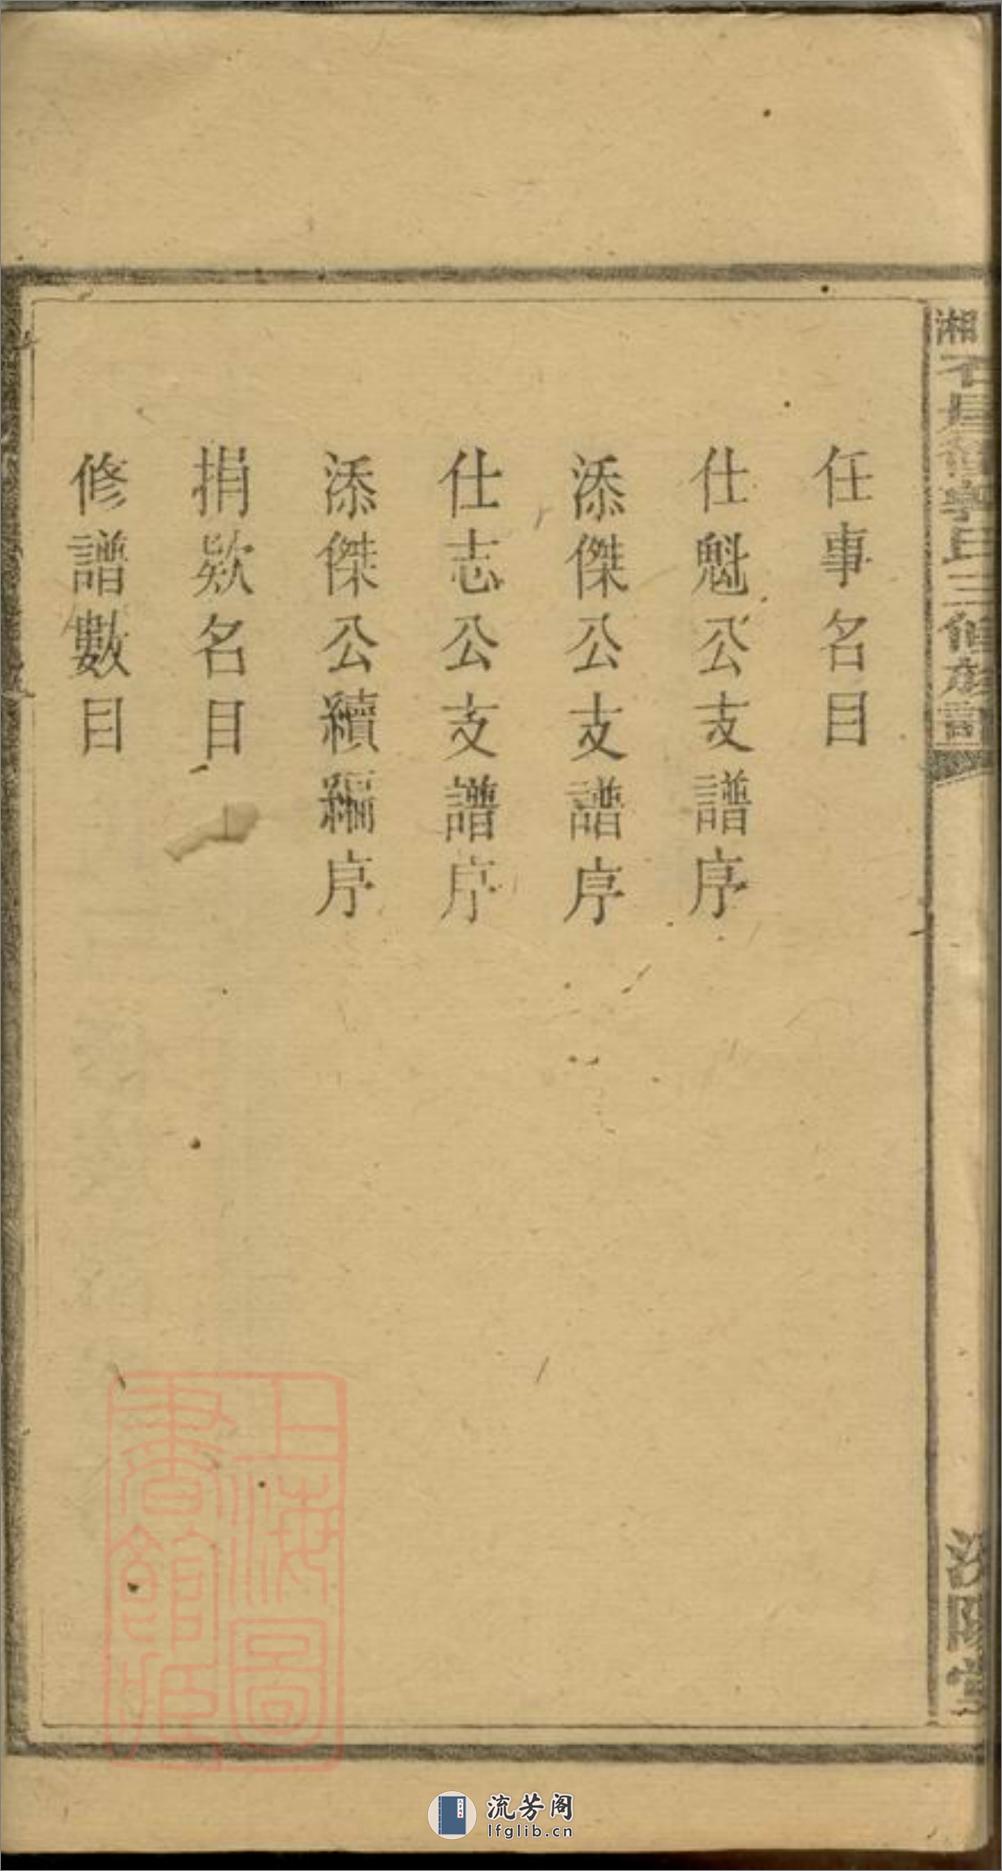 任事名目
仕魁公支譜序
添傑公支譜序
仕志公支譜序
添傑公續編序
捐欵名目
修譜數目
湘
寧氏三修族譜
陽堂
上海圖書館藏
流芳阁
lfglib.cn